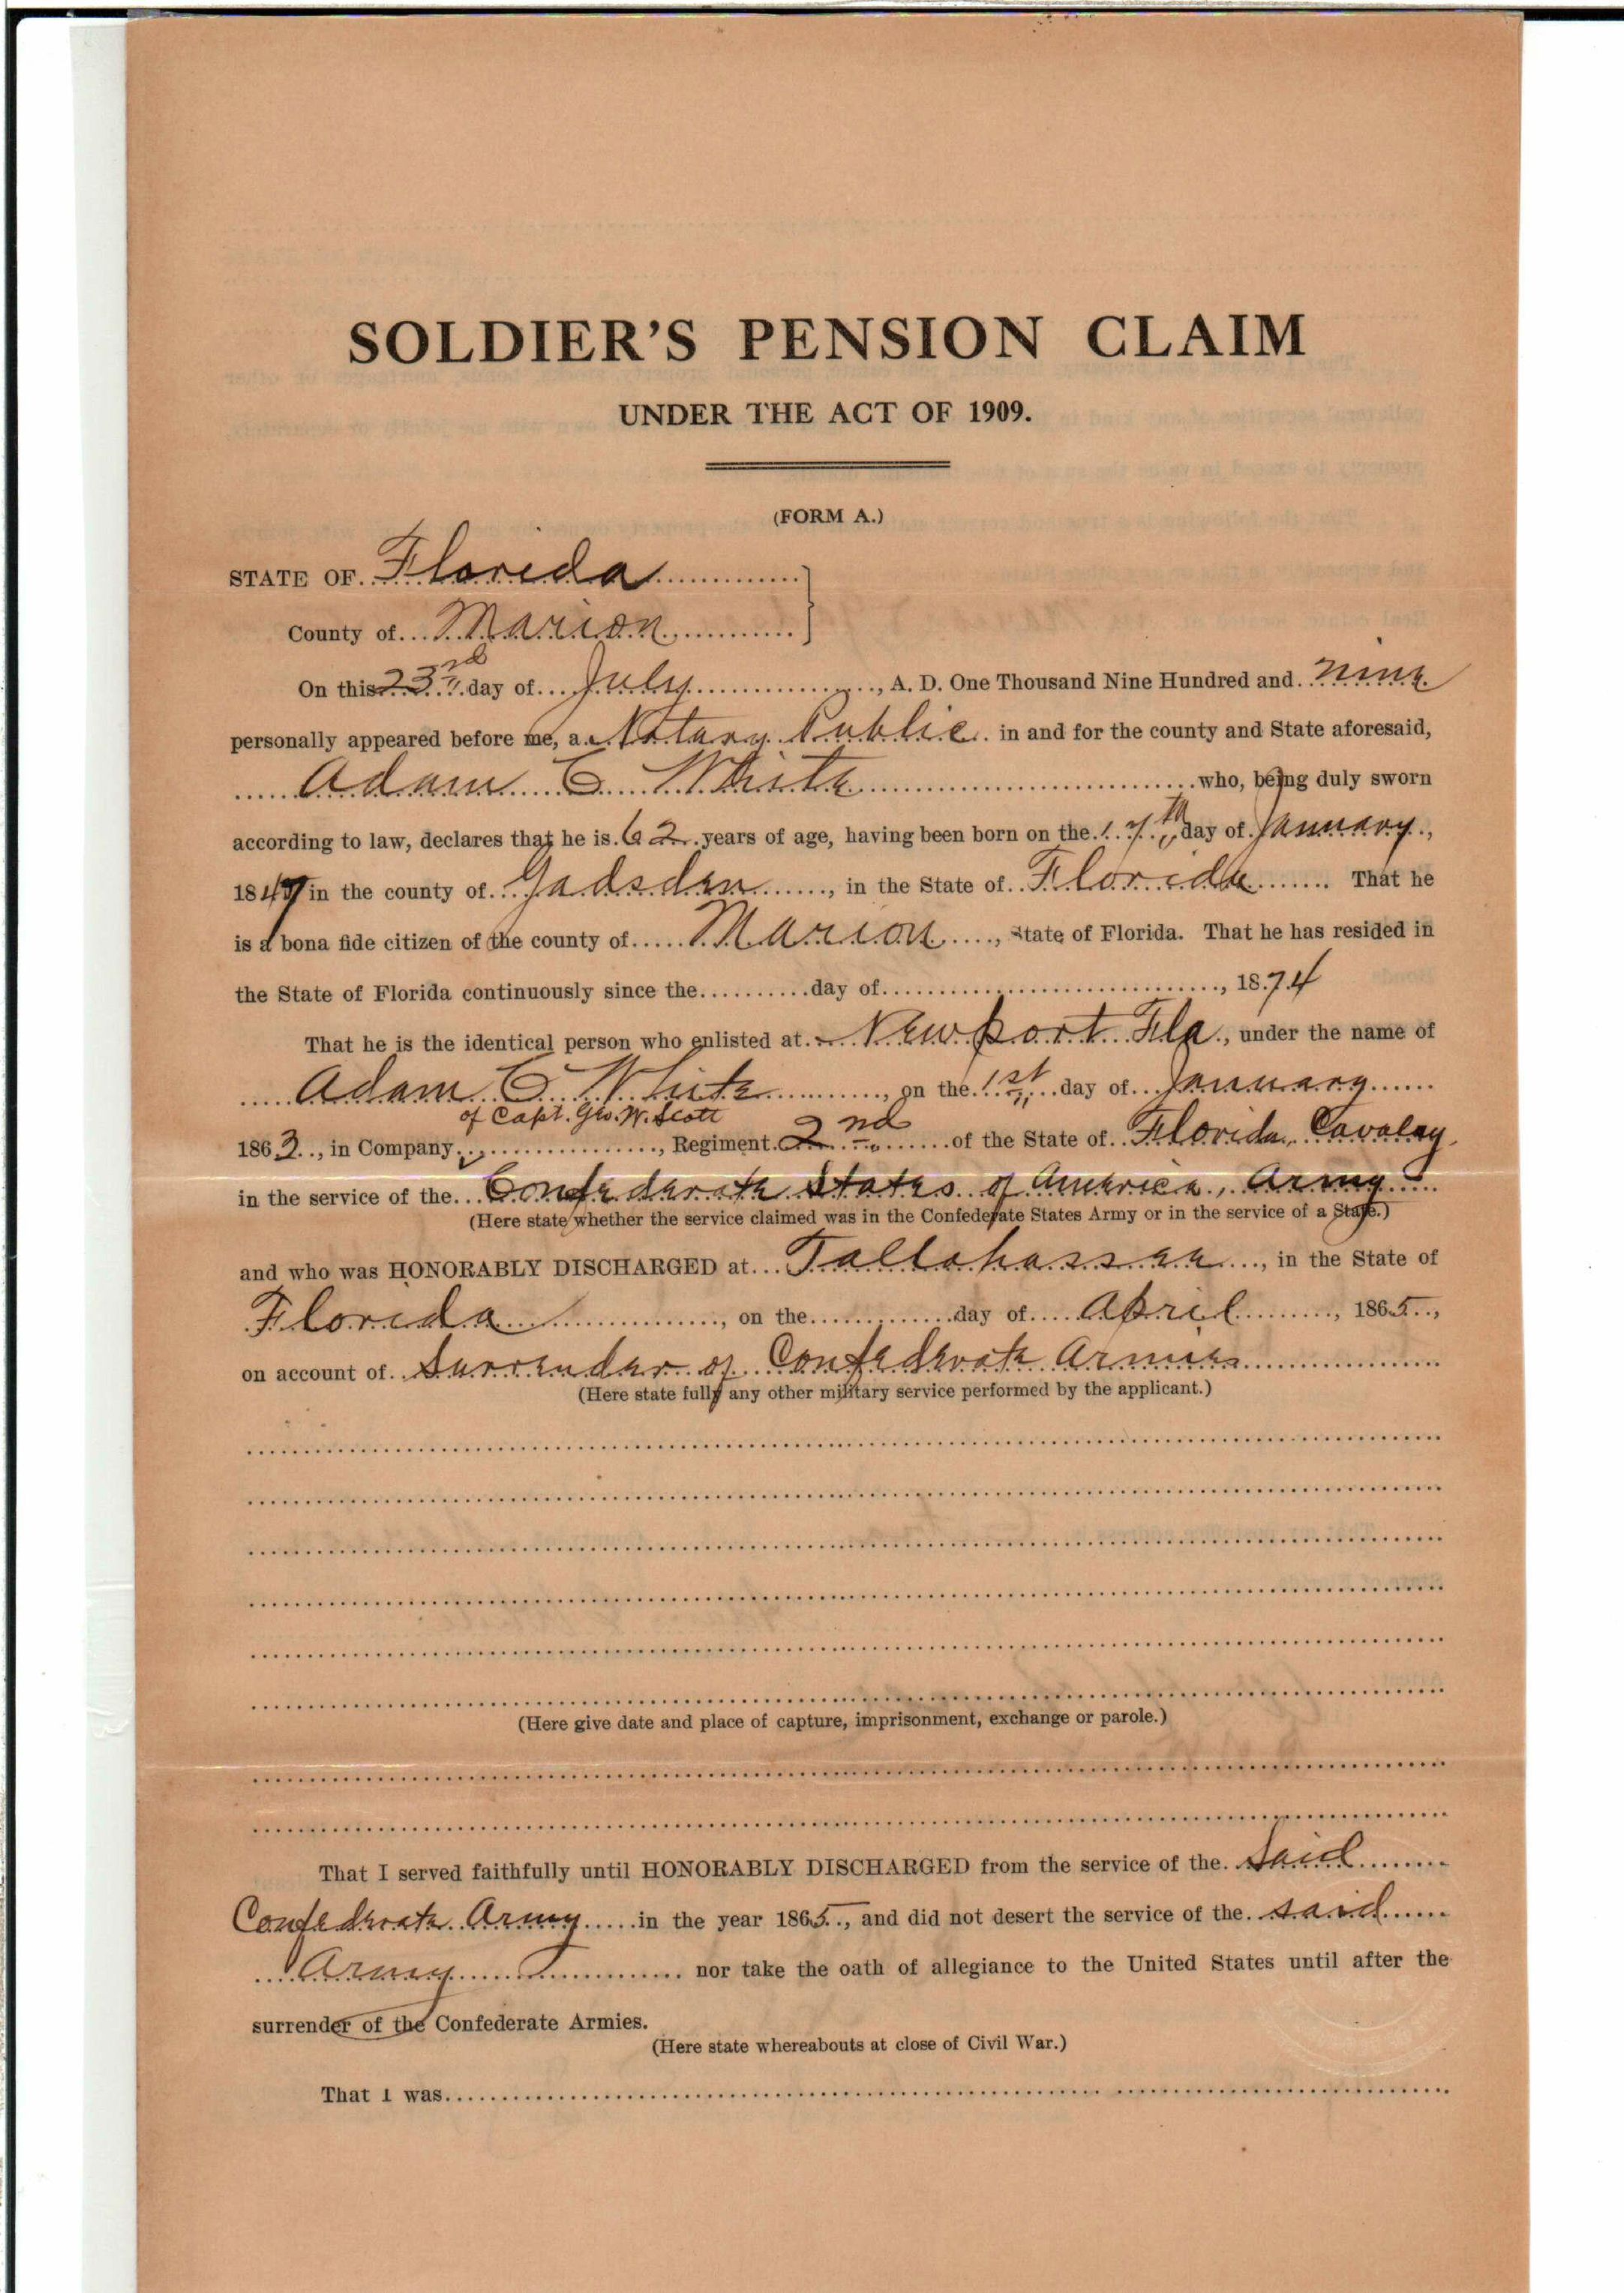 SOLDIER'S PENSION CLAIM
UNDER THE ACT OF 1909.
(FORM A.)
STATE OF Florida
County of Marion
On this 23rd day of July, A. D. One Thousand Nine Hundred and nine
personally appeared before me, a Notary Public in and for the county and State aforesaid,
Adam C White who, being duly sworn
according to law, declares that he is 62 years of age, having been born on the 17th day of January,
1847 in the county of Gadsden, in the State of Florida That he
is a bona fide citizen of the county of Marion, State of Florida. That he has resided in
the State of Florida continuously since the day of , 1874
That he is the identical person who enlisted at Newport Fla., under the name of
Adam C White, on the 1st day of January
of Capt. Geo. W. Scott
1863, in Company , Regiment 2nd of the State of Florida Cavalay
in the service of the Confederate States of America, Army
(Here state whether the service claimed was in the Confederate States Army or in the service of a State.)
and who was HONORABLY DISCHARGED at Tallahassee, in the State of
Florida, on the day of April, 1865,
on account of Surrender of Confederate Armies
(Here state fully any other military service performed by the applicant.)
(Here give date and place of capture, imprisonment, exchange or parole.)
That I served faithfully until HONORABLY DISCHARGED from the service of the Said
Confederate Army in the year 1865, and did not desert the service of the said
Army nor take the oath of allegiance to the United States until after the
surrender of the Confederate Armies.
(Here state whereabouts at close of Civil War.)
That I was